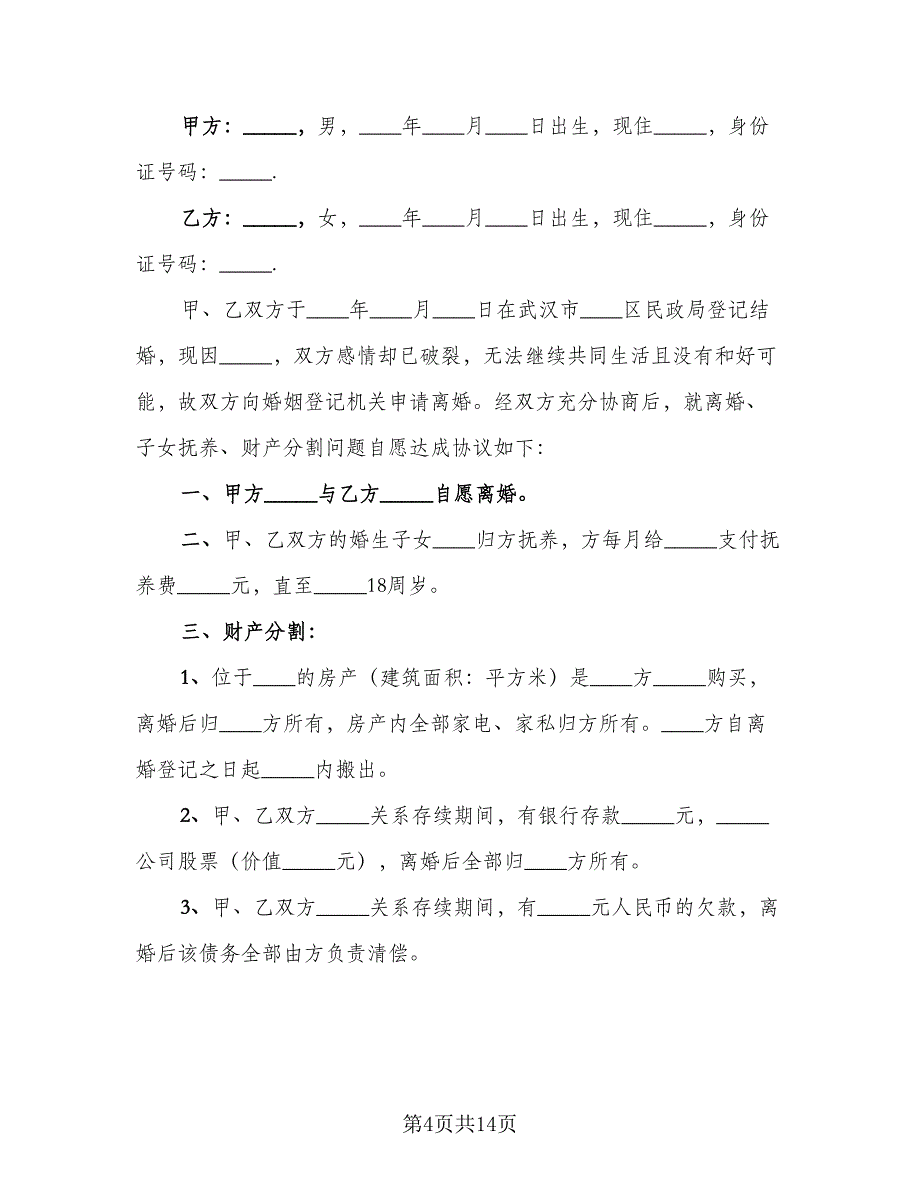 甲方：_____，男，____年____月____日出生，现住_____，身份
证号码：_____.
乙方：_____，女，____年____月____日出生，现住_____，身份
证号码：_____.
甲、乙双方于____年____月____日在武汉市____区民政局登记结
婚，现因_____，双方感情却已破裂，无法继续共同生活且没有和好可
能，故双方向婚姻登记机关申请离婚。经双方充分协商后，就离婚、
子女抚养、财产分割问题自愿达成协议如下：
一、甲方_____与乙方_____自愿离婚。
二、甲、乙双方的婚生子女____归方抚养，方每月给_____支付抚
养费_____元，直至_____18周岁。
三、财产分割：
1、位于____的房产（建筑面积：平方米）是____方_____购买，
离婚后归____方所有，房产内全部家电、家私归方所有。____方自离
婚登记之日起_____内搬出。
2、甲、乙双方_____关系存续期间，有银行存款_____元，_____
公司股票（价值_____元），离婚后全部归____方所有。
3、甲、乙双方_____关系存续期间，有_____元人民币的欠款，离
婚后该债务全部由方负责清偿。
第4页共14页